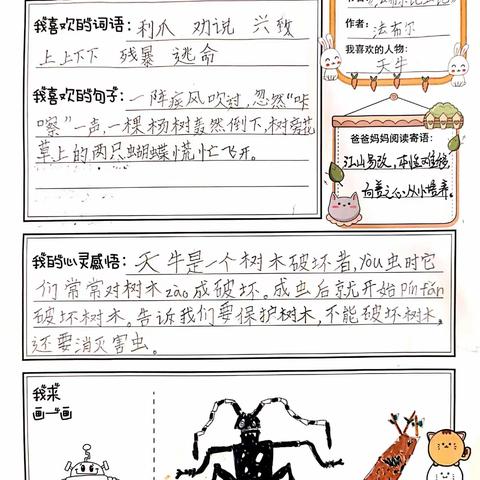 我喜欢的词语：利爪 劝说 兴致
上上下下 残暴 逃命
我喜欢的句子：一阵疾风吹过，忽然“咔
嚓”一声，一棵杨树轰然倒下，树旁花
草上的两只蝴蝶慌忙飞开。
作者：
法布尔
我喜欢的人物：
天牛
爸爸妈妈阅读寄语：
江山易改，本性难移
向善之心从小培养。
我的心灵感悟：天牛是一个树木破坏者，yòu虫时它
们常常对树木zào成破坏。成虫后就开始pín fán
破坏树木。告诉我们要保护树木，不能破坏树木。
还要消灭害虫。
我来
画一画